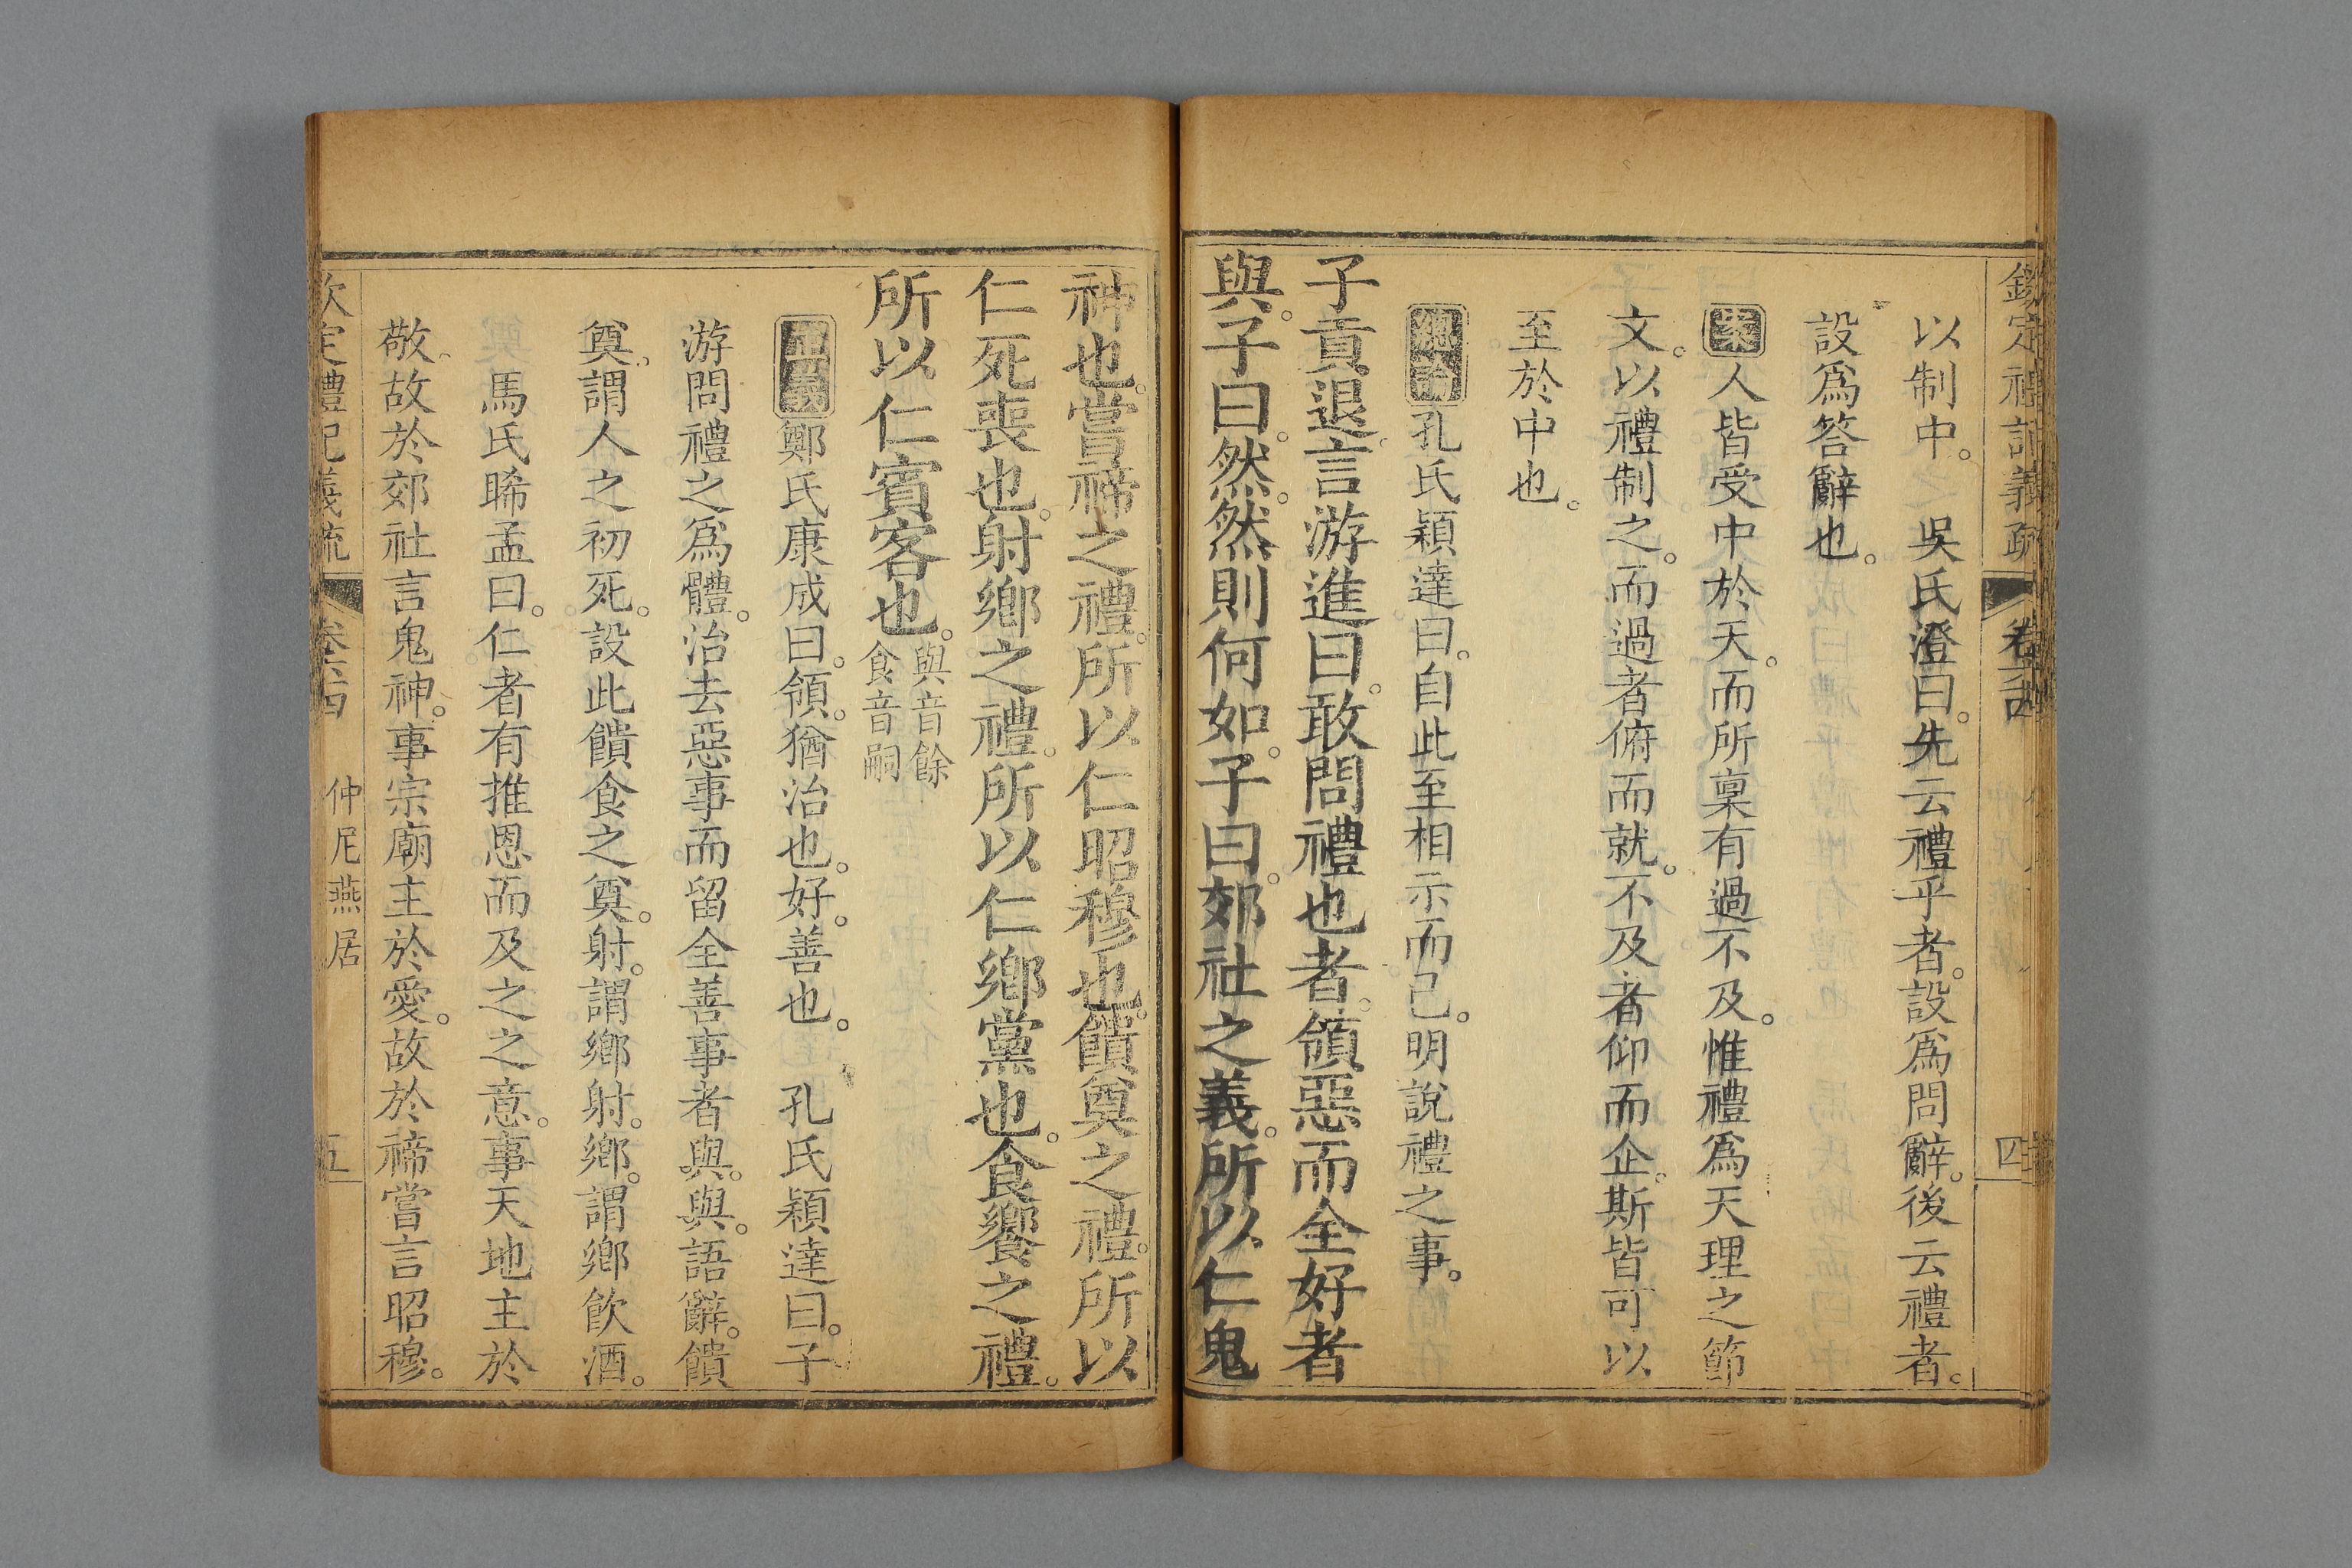 欽定禮記義疏 卷六十四 四
以制中。 吳氏澄曰。先云禮乎者。設爲問辭。後云禮者。
設爲答辭也。
案人皆受中於天。而所稟有過不及。惟禮爲天理之節
文。以禮制之。而過者俯而就。不及者仰而企。斯皆可以
至於中也。
總論孔氏穎達曰。自此至相示而已。明說禮之事。
子貢退。言游進曰。敢問禮也者。領惡而全好者
與。子曰。然。然則何如。子曰。郊社之義。所以仁鬼
神也。嘗禘之禮。所以仁昭穆也。饋奠之禮。所以
仁死喪也。射鄉之禮。所以仁鄉黨也。食饗之禮。
所以仁賓客也。與音餘
食音嗣
正義鄭氏康成曰。領。猶治也。好。善也。 孔氏穎達曰。子
游問禮之爲體。治去惡事而留全善事者與。與。語辭。饋
奠。謂人之初死。設此饋食之奠。射。謂鄉射。鄉。謂鄉飲酒。
馬氏睎孟曰。仁者有推恩而及之之意。事天地主於
敬。故於郊社言鬼神。事宗廟主於愛。故於禘嘗言昭穆。
欽定禮記義疏 卷六十四 仲尼燕居 五